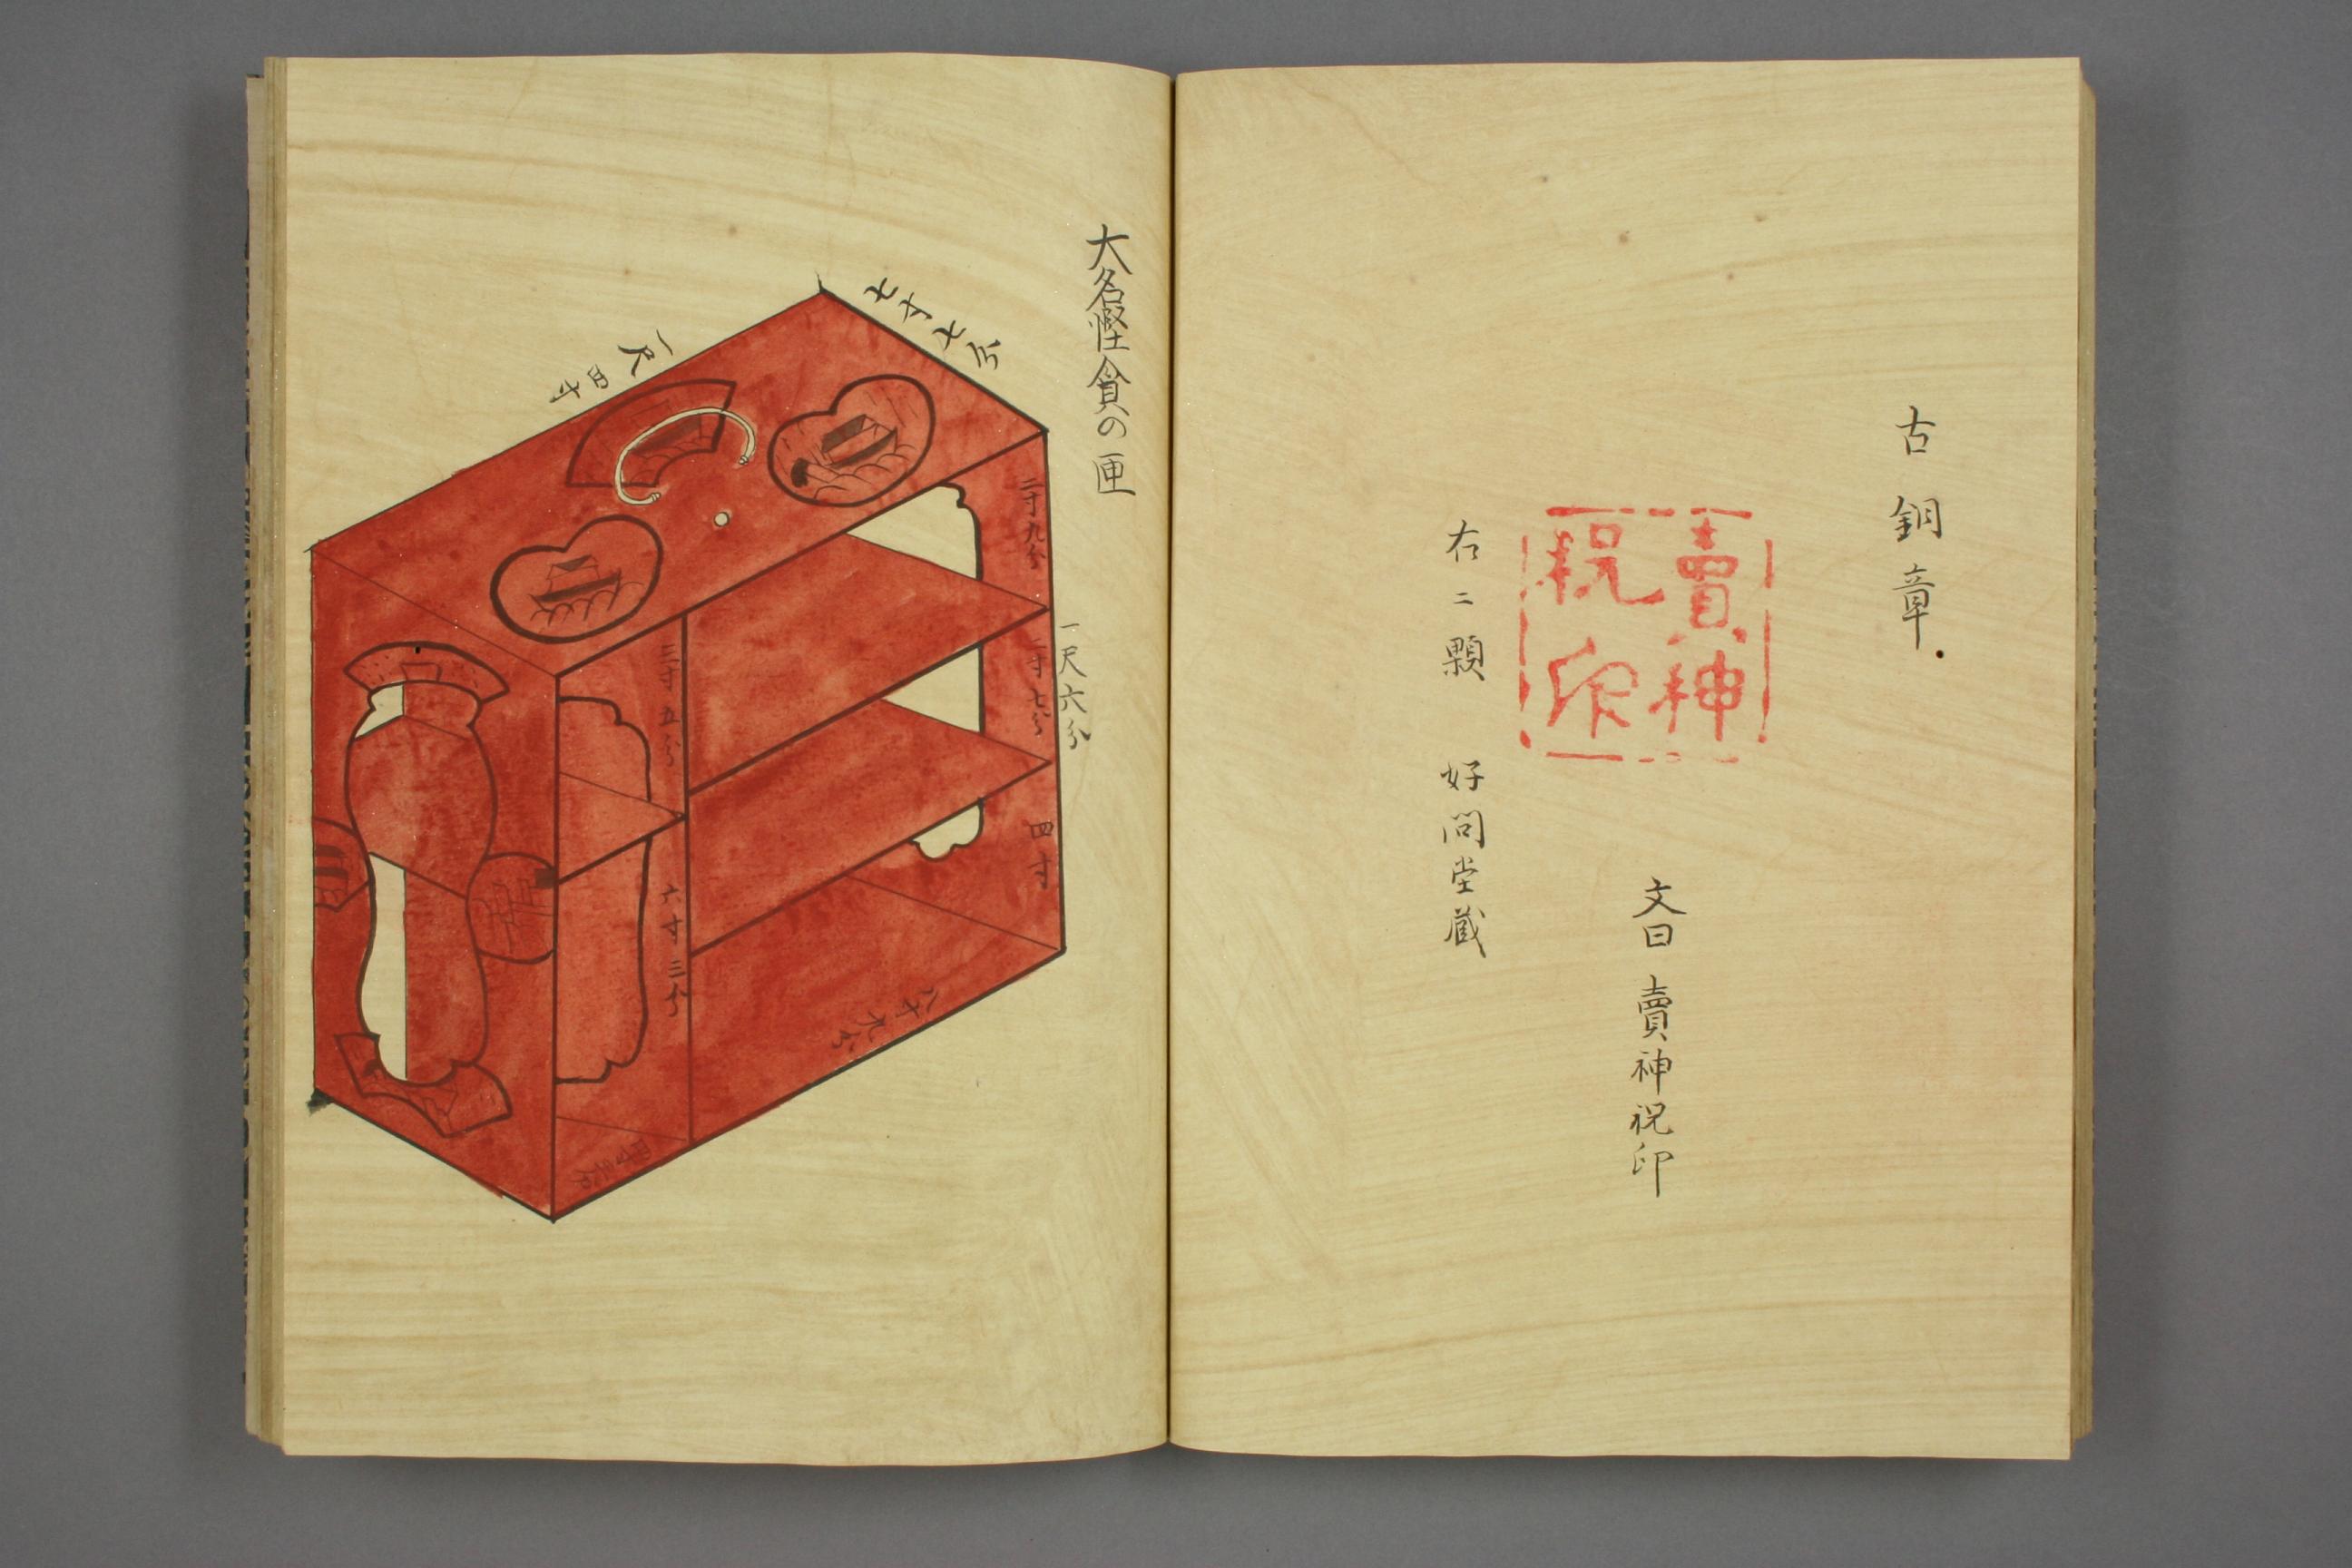 古銅章
賣神
祝印
文曰 賣神祝印
右二顆 好問堂蔵
大名慳貪の匣
七寸七分
一尺四寸
二寸九分
二寸七分
四寸
一尺六分
三寸五分
六寸三分
八寸九分